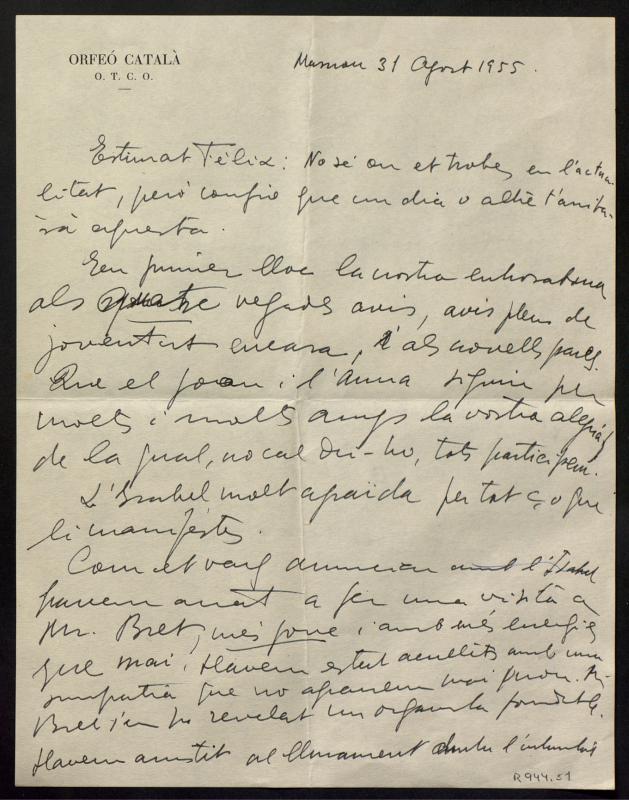 ORFEÓ CATALÀ
O. T. C. O.
Masnou 31 Agost 1955.
Estimat Fèlix: No sé on et trobes en l'actua-
litat, però confio que un dia o altre t'arriba-
rà aquesta.
En primer lloc la nostra enhorabona
als quatre vegades avis, avis plens de
joventut encara, i als novells pares.
Que el Joan i l'Anna siguin per
molts i molts anys la vostra alegria
de la qual, no cal dir-ho, tots participem.
L'Isabel molt agraïda per tot ço que
li manifestes.
Com et vaig anunciar amb l'Isabel
havem anat a fer una visita a
Mr. Bret, més jove i amb més energies
que mai. Havem estat acullits amb una
simpatia que no agrairem mai prou. Mr
Bret s'en ha revelat un organista formidable.
Havem assistit al llançament
R 944.51